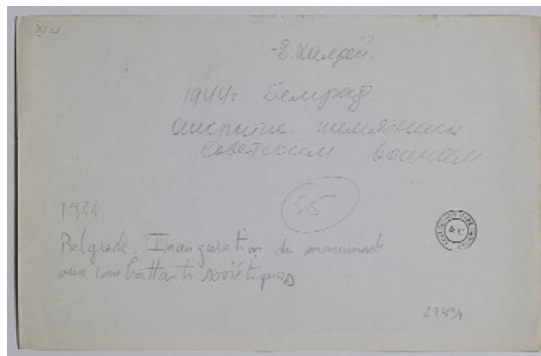 XI
Е. Халдей.
1944г Белград
открытие памятника
Советским воинам
35
1944
Belgrade. Inauguration du monument
aux combattants soviétiques